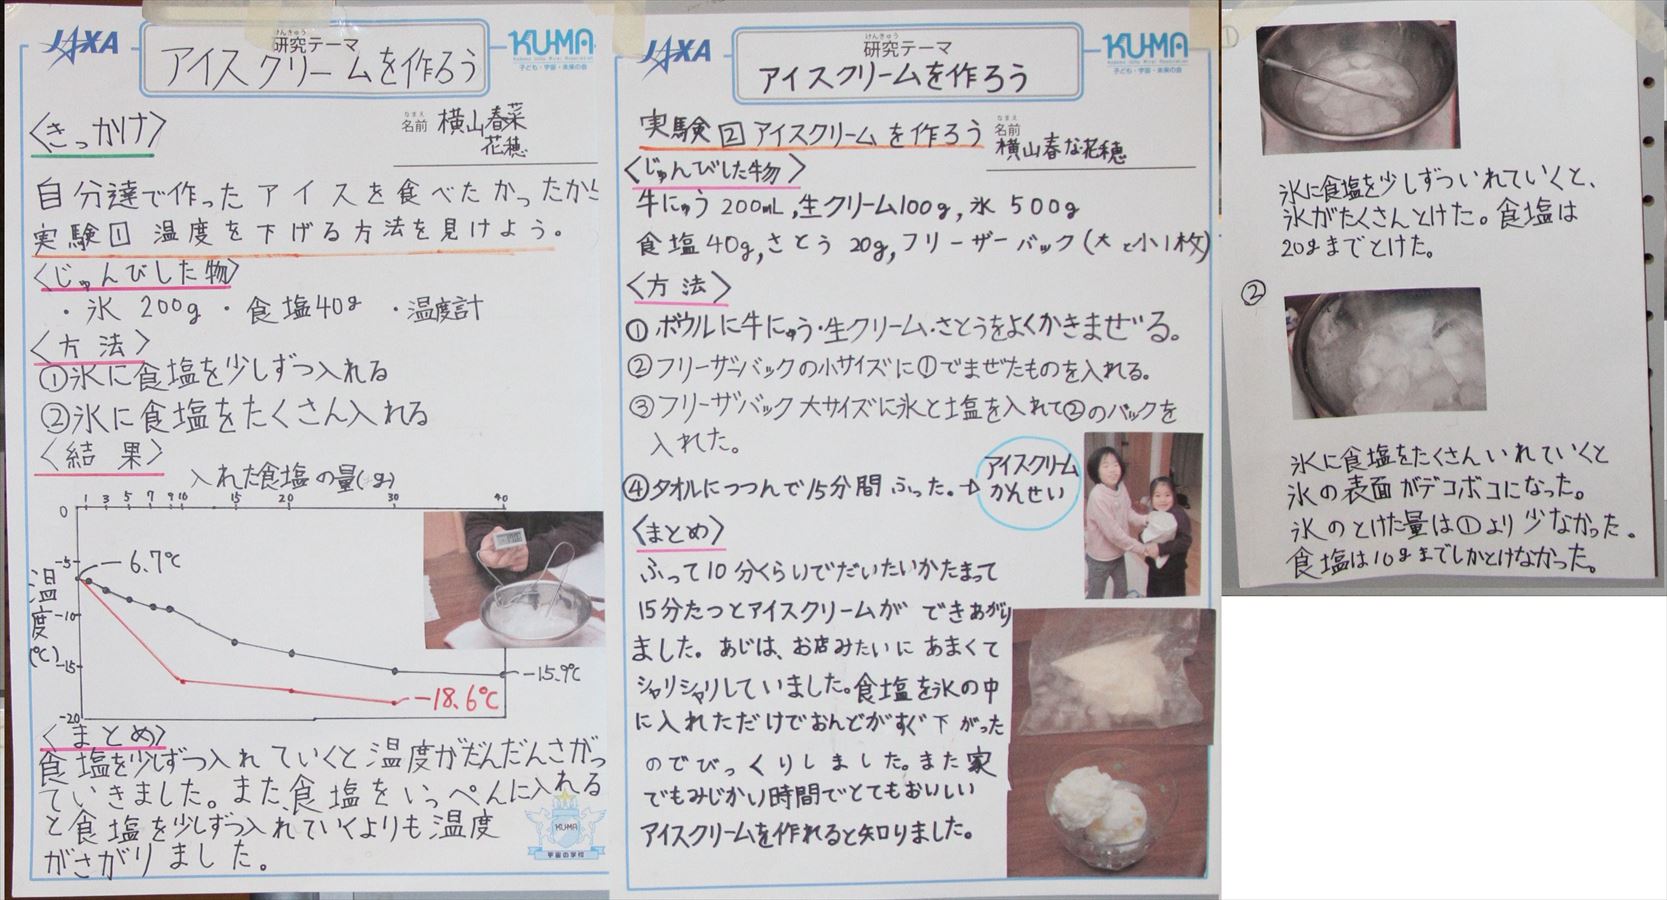 JAXA
けんきゅう
研究テーマ
KU-MA
子ども・宇宙・未来の会
アイスクリームを作ろう
なまえ
名前 横山春菜
花穂
〈きっかけ〉
自分達で作ったアイスを食べたかったから
実験1 温度を下げる方法を見けよう。
〈じゅんびした物〉
・氷 200g ・食塩40g ・温度計
〈方法〉
①氷に食塩を少しずつ入れる
②氷に食塩をたくさん入れる
〈結果〉
入れた食塩の量(g)
1 3 5 7 9 10 15 20 30 40
0
-5
-10
-15
-20
温度(℃)
-6.7℃
-15.9℃
-18.6℃
〈まとめ〉
食塩を少しずつ入れていくと温度がだんだんさがっ
ていきました。また、食塩をいっぺんに入れる
と食塩を少しずつ入れていくよりも温度
がさがりました。
KUMA
宇宙の学校
JAXA
けんきゅう
研究テーマ
KU-MA
子ども・宇宙・未来の会
アイスクリームを作ろう
実験2 アイスクリームを作ろう
なまえ
名前
横山春な花穂
〈じゅんびした物〉
牛にゅう 200mL,生クリーム100g,氷 500g
食塩40g,さとう 20g,フリーザーバック(大と小1枚)
〈方法〉
①ボウルに牛にゅう・生クリーム・さとうをよくかきまぜる。
②フリーザーバックの小サイズに①でまぜたものを入れる。
③フリーザバック大サイズに氷と塩を入れて②のバックを
入れた。
④タオルにつつんで15分間ふった。→
アイスクリーム
かんせい
〈まとめ〉
ふって10分くらいでだいたいかたまって
15分たつとアイスクリームができあがり
ました。あじは、お店みたいにあまくて
シャリシャリしていました。食塩を氷の中
に入れただけでおんどがすぐ下がった
のでびっくりしました。また家
でもみじかい時間でとてもおいしい
アイスクリームを作れると知りました。
①
氷に食塩を少しずついれていくと、
氷がたくさんとけた。食塩は
20gまでとけた。
②
氷に食塩をたくさんいれていくと
氷の表面がデコボコになった。
氷のとけた量は①より少なかった。
食塩は10gまでしかとけなかった。